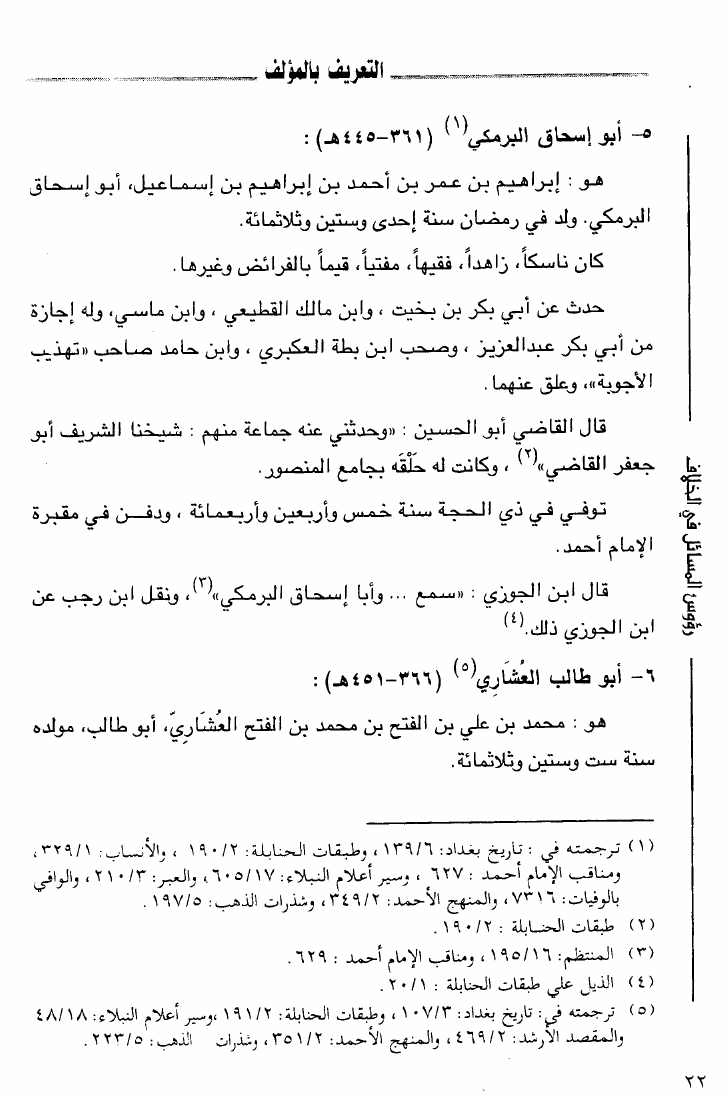 التعريف بالمؤلف
٥- أبو إسحاق البرمكي(١) (٣٦١-٤٤٥هـ) :
هو : إبراهيم بن عمر بن أحمد بن إبراهيم بن إسماعيل، أبو إسحاق
البرمكي. ولد في رمضان سنة إحدى وستين وثلاثمائة.
كان ناسكاً، زاهداً، فقيهاً، مفتياً، قيماً بالفرائض وغيرها.
حدث عن أبي بكر بن بخيت ، وابن مالك القطيعي ، وابن ماسي، وله إجازة
من أبي بكر عبدالعزيز ، وصحب ابن بطة العكبري ، وابن حامد صاحب «تهذيب
الأجوبة»، وعلق عنهما.
قال القاضي أبو الحسين : «وحدثني عنه جماعة منهم : شيخنا الشريف أبو
جعفر القاضي»(٢) ، وكانت له حَلْقَه بجامع المنصور.
توفي في ذي الحجة سنة خمس وأربعين وأربعمائة ، ودفن في مقبرة
الإمام أحمد.
قال ابن الجوزي : «سمع ... وأبا إسحاق البرمكي»(٣)، ونقل ابن رجب عن
ابن الجوزي ذلك.(٤)
٦- أبو طالب العُشَارِي(٥) (٣٦٦-٤٥١هـ) :
هو : محمد بن علي بن الفتح بن محمد بن الفتح العُشَارِيّ، أبو طالب، مولده
سنة ست وستين وثلاثمائة.
(١) ترجمته في : تاريخ بغداد: ١٣٩/٦ ، وطبقات الحنابلة: ١٩٠/٢ ، والأنساب: ٣٢٩/١،
ومناقب الإمام أحمد : ٦٢٧ ، وسير أعلام النبلاء: ٦٠٥/١٧، والعبر: ٢١٠/٣، والوافي
بالوفيات: ٧٣١٦، والمنهج الأحمد: ٣٤٩/٢، وشذرات الذهب: ١٩٧/٥.
(٢) طبقات الحنابلة : ١٩٠/٢.
(٣) المنتظم: ١٩٥/١٦، ومناقب الإمام أحمد : ٦٢٩.
(٤) الذيل علي طبقات الحنابلة : ٢٠/١.
(٥) ترجمته في: تاريخ بغداد: ١٠٧/٣، وطبقات الحنابلة: ١٩١/٢ ،وسير أعلام النبلاء: ٤٨/١٨
والمقصد الأرشد: ٤٦٩/٢، والمنهج الأحمد: ٣٥١/٢، وشذرات الذهب: ٢٢٣/٥.
رؤوس المسائل في الخلاف
٢٢